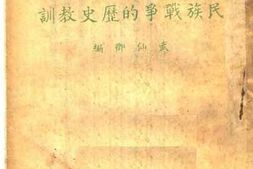 民族戰爭的歷史教訓
仙 編